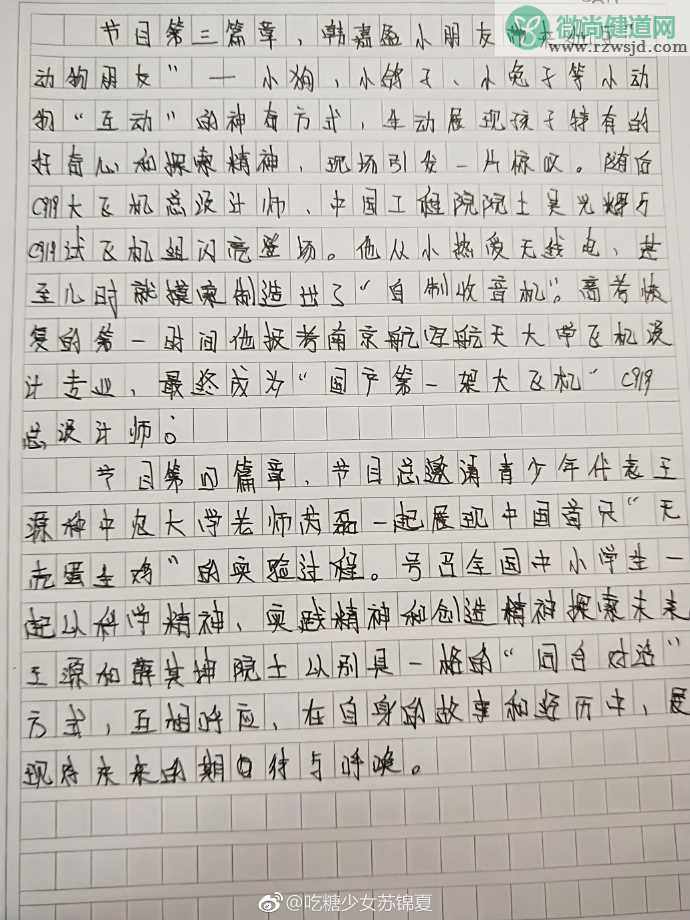 微尚健道网
www.rzwsjd.com
节目第三篇章，韩嘉盈小朋友带来
动物朋友”— 小狗、小鸽子、小兔子等小动
物“互动”的神奇方式，生动展现孩子特有的
好奇心和探索精神，现场引发一片惊叹。随后
C919大飞机总设计师、中国工程院院士吴光辉与
C919试飞机组闪亮登场。他从小热爱无线电，甚
至儿时就摸索制造出了“自制收音机”。高考恢
复的第一时间他报考南京航空航天大学飞机设
计专业，最终成为“国产第一架大飞机”C919
总设计师。
节目第四篇章，节目总邀请青少年代表王
源和中农大学老师芮磊一起展现中国首只“无
壳蛋生鸡”的实验过程。号召全国中小学生一
起以科学精神、实践精神和创造精神探索未来
王源和薛其坤院士以别具一格的“同台对话”
方式，互相呼应，在自身的故事和经历中，展
现对未来的期待与呼唤。
@吃糖少女苏锦夏